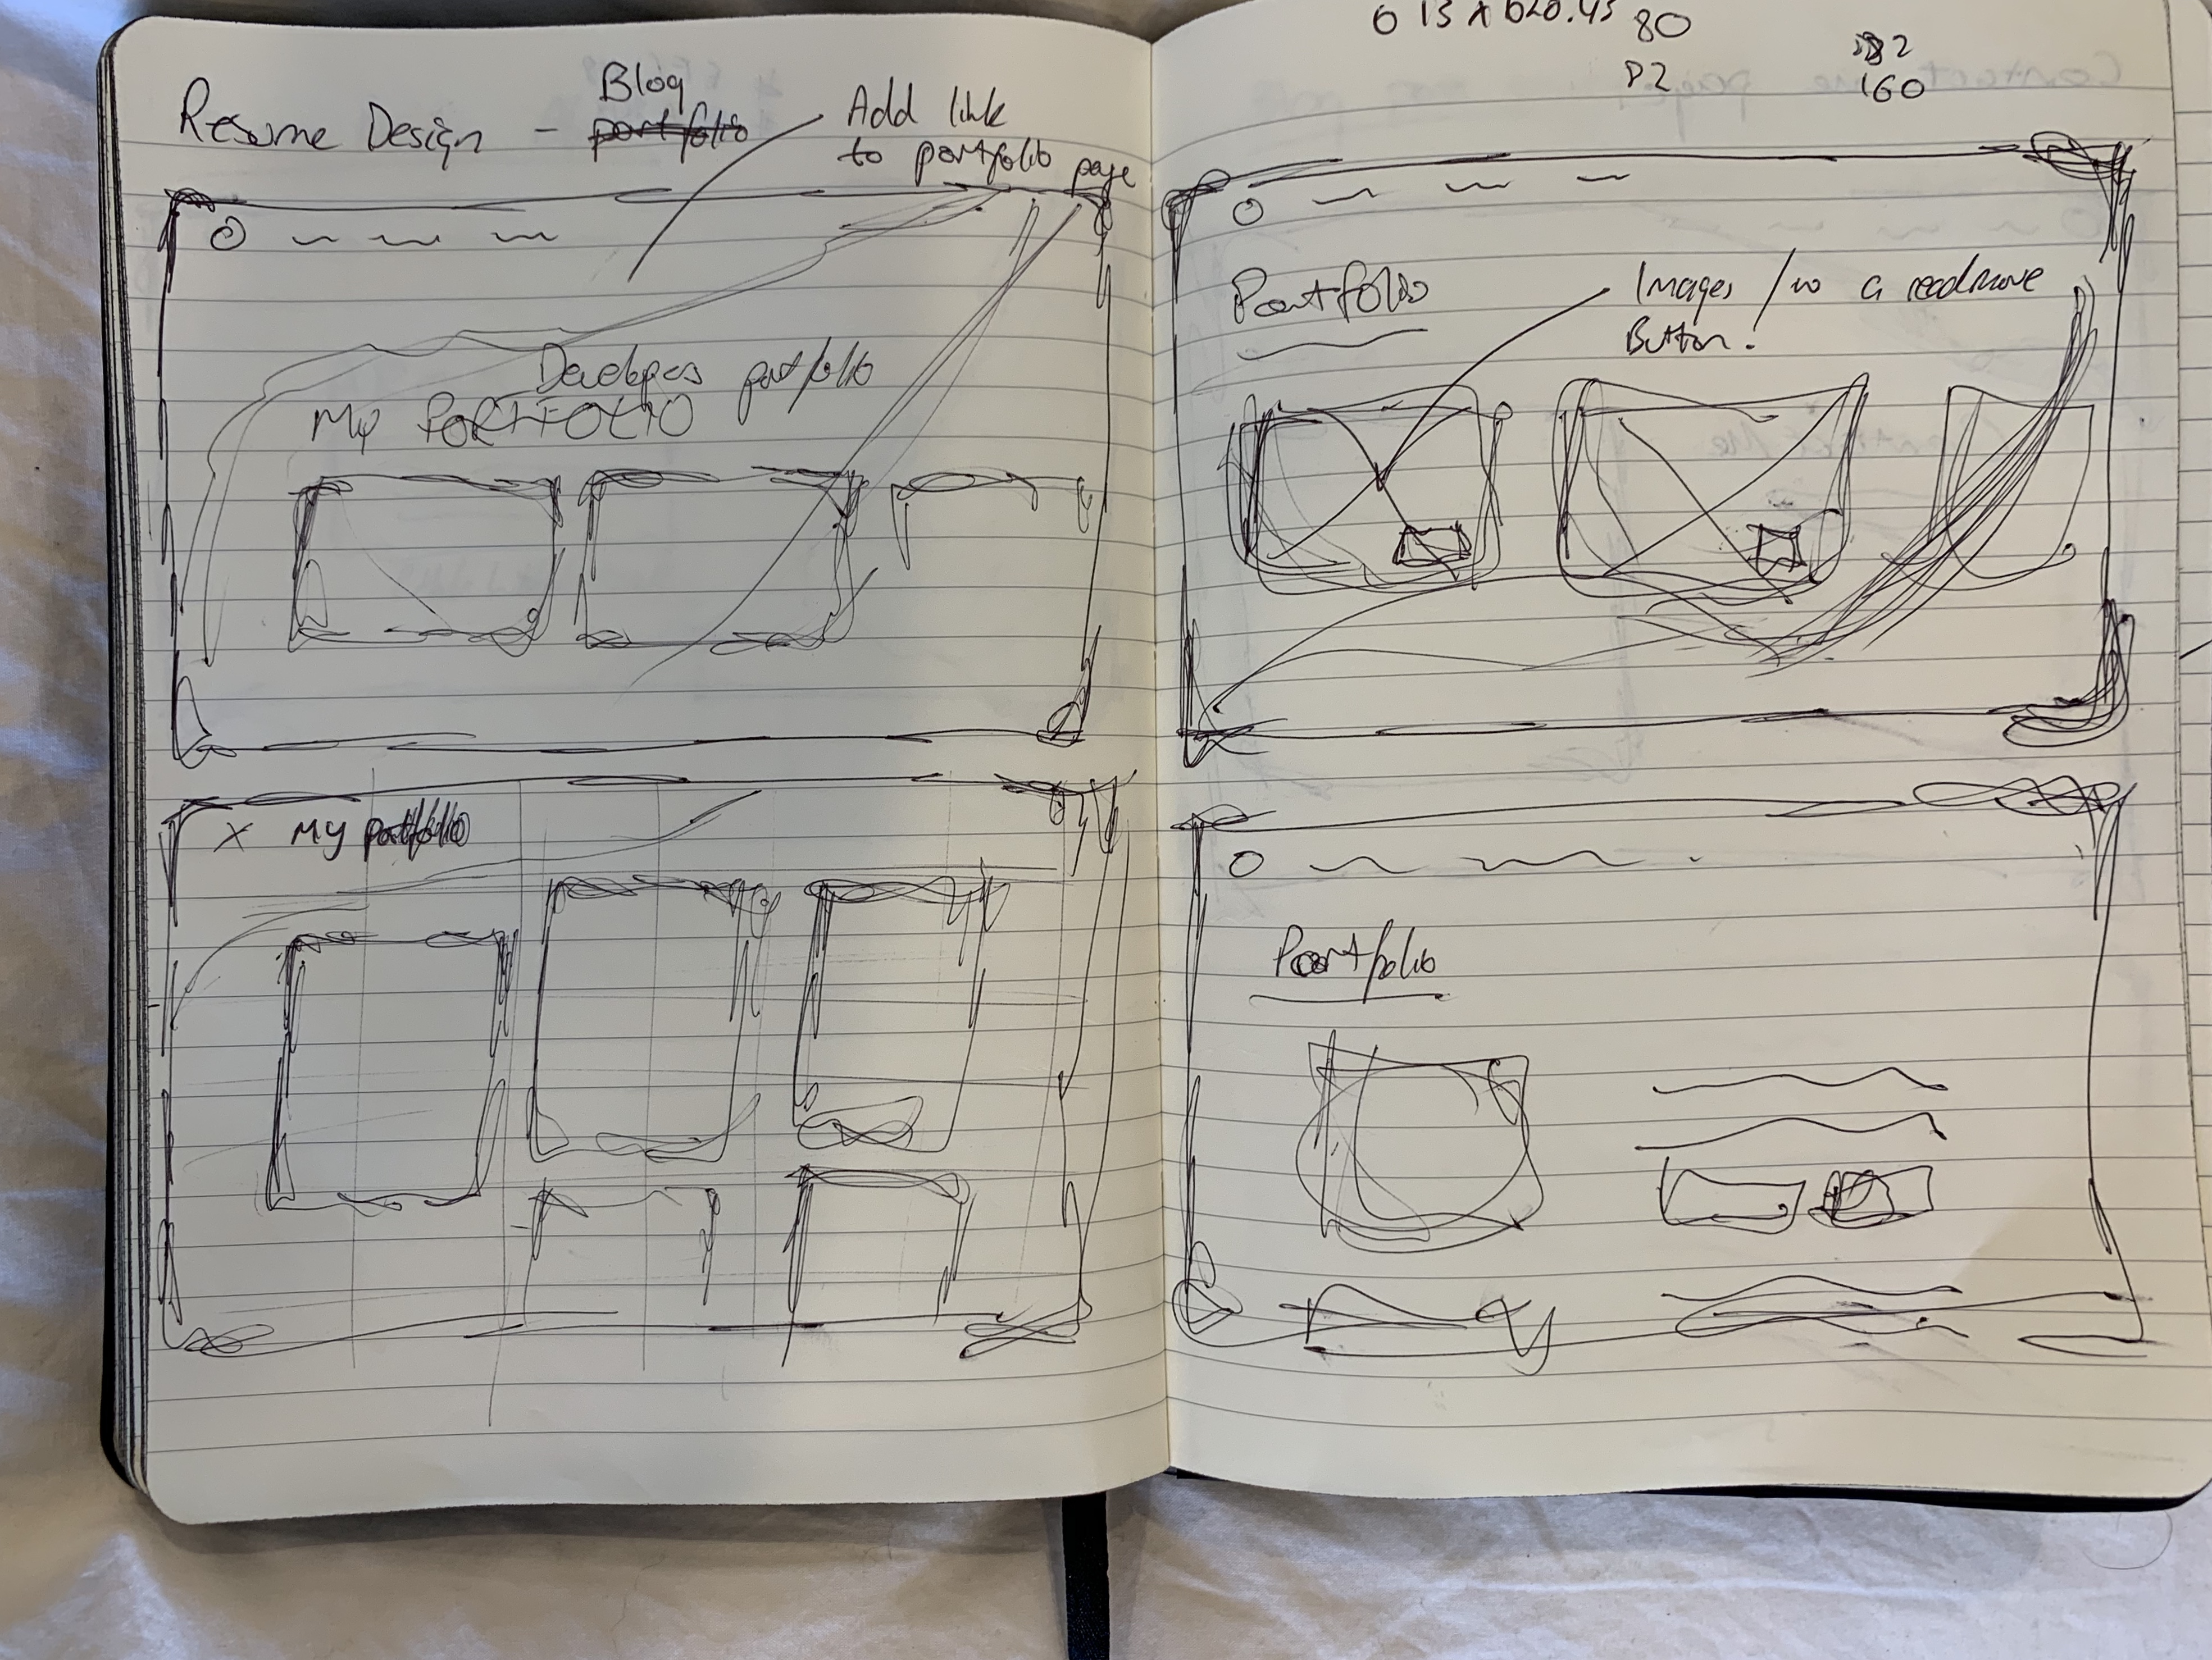 Blog
Resume Design - portfolio
Add link
to portfolio page
Developers portfolio
My PORTFOLIO
X My portfolio
80
P2
2
160
Portfolio
Images / w a readmore
Button.
Portfolio